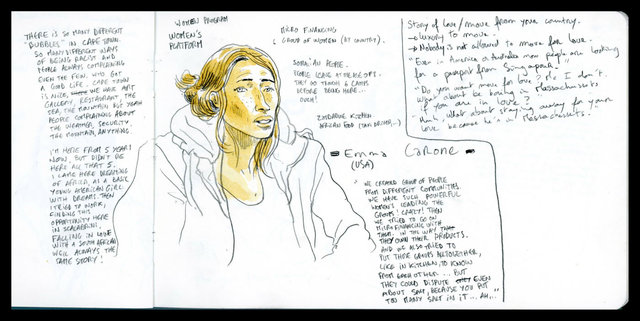 THERE IS SO MANY DIFFERENT
"BUBBLES" IN CAPE TOWN.
SO MANY DIFFERENT WAYS
OF BEING RACIST AND
PEOPLE ALWAYS COMPLAINING
EVEN THE FEW, WHO GOT
A GOOD LIFE. CAPE TOWN
IS NICE, WE HAVE ART
GALLERY, RESTAURANT THE
SEA, THE MOUNTAIN BUT YEAH
PEOPLE COMPLAINING ABOUT
THE WEATHER, SECURITY
THE MOUNTAIN, ANYTHING.
I'M HERE FROM 5 YEARS
NOW, BUT DIDN'T BE
HERE ALL THAT 5.
I CAME HERE DREAMING
OF AFRICA, AS A BASIC
YOUNG AMERICAN GIRL.
WITH DREAMS THEN
I TRIED TO WORK,
FINDING THIS
OPPORTUNITY HERE
IN SCALABRINI.
FALLING IN LOVE
WITH A SOUTH AFRICAN
WELL ALWAYS THE
SAME STORY!
WOMEN PROGRAM
WOMEN'S
PLATFORM
MICRO FINANCING
GROUP OF WOMEN (BY COUNTRY).
PEOPLE LEAVE AT
BEFORE HERE...
OUCH!
ZIMBABWE KITCHEN
AFRICAN FOOD
Emma Carone
(USA)
WE CREATED GROUP OF PEOPLE
FROM DIFFERENT COMMUNITIES
WE HAVE SUCH POWERFUL
WOMEN'S LEADING THE
GROUPS! CRAZY! THEN
WE TRIED TO GO ON
MICROFINANCING WITH
THEM. IN THE WAY
THEY OWN THEIR PRODUCTS.
AND WE ALSO TRIED TO
PUT THOSE GROUPS ALTOGETHER,
LIKE IN KITCHEN, TO KNOW
FROM EACH OTHER... BUT
THEY COULD DISPUTE EVEN
ABOUT SALT, BECAUSE YOU PUT
TOO MANY SALT IN IT... AH...
Story of love/move from your country.
→ luxury to move.
→ Nobody is not allowed to move for love.
"Even in America & Australia now people are looking
for a passport from Singapore."
"Do you want move for love? Me I don't.
What about be boring in Massachusetts
if you are in love?
Hum, what about staying away for your
love because he's in Massachusetts.